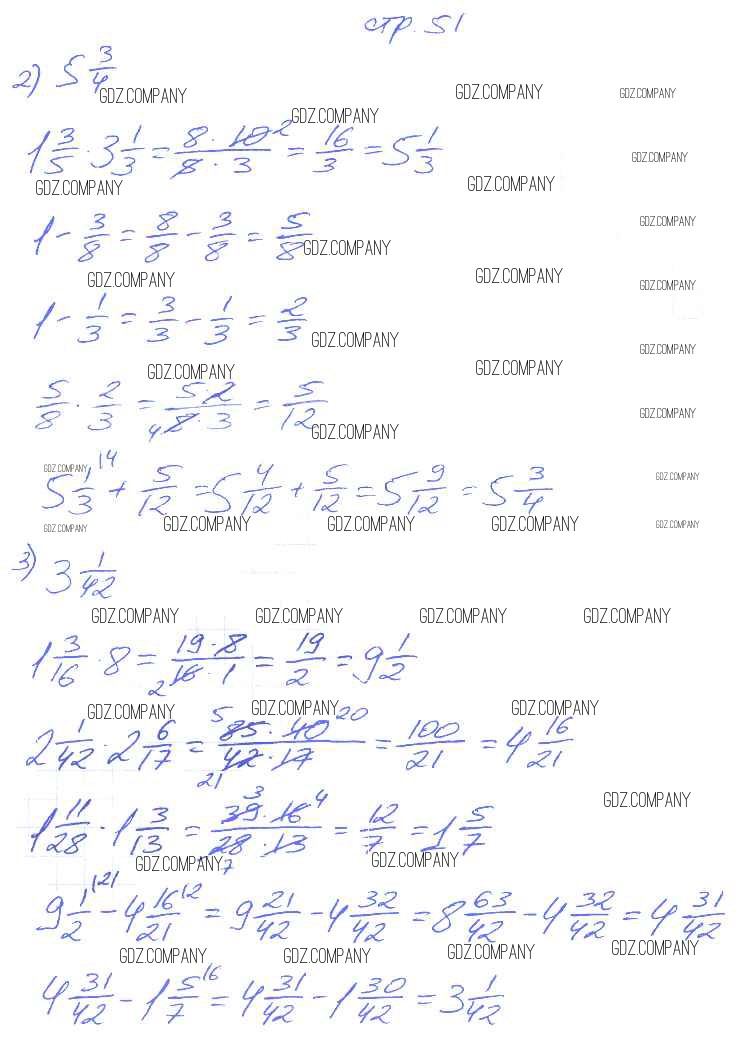 стр. 51
2) 5 3/4
GDZ.COMPANY GDZ.COMPANY GDZ.COMPANY
GDZ.COMPANY
1 3/5 · 3 1/3 = 8 · 10 2 / 5 · 3 = 16/3 = 5 1/3
GDZ.COMPANY
GDZ.COMPANY GDZ.COMPANY
GDZ.COMPANY
1 - 3/8 = 8/8 - 3/8 = 5/8
GDZ.COMPANY
GDZ.COMPANY GDZ.COMPANY
GDZ.COMPANY
1 - 1/3 = 3/3 - 1/3 = 2/3
GDZ.COMPANY
GDZ.COMPANY
GDZ.COMPANY GDZ.COMPANY
5/8 · 2/3 = 5 · 2 / 4 8 · 3 = 5/12
GDZ.COMPANY
GDZ.COMPANY
GDZ.COMPANY GDZ.COMPANY
5 1/3 |4 + 5/12 = 5 4/12 + 5/12 = 5 9/12 = 5 3/4
GDZ.COMPANY GDZ.COMPANY GDZ.COMPANY GDZ.COMPANY GDZ.COMPANY
3) 3 1/42
GDZ.COMPANY GDZ.COMPANY GDZ.COMPANY GDZ.COMPANY
1 3/16 · 8 = 19 · 8 / 2 16 · 1 = 19/2 = 9 1/2
GDZ.COMPANY GDZ.COMPANY GDZ.COMPANY
2 1/42 · 2 6/17 = 5 85 · 40 20 / 21 42 · 17 = 100/21 = 4 16/21
GDZ.COMPANY
1 11/28 · 1 3/13 = 3 39 · 16 4 / 28 7 · 13 = 12/7 = 1 5/7
GDZ.COMPANY GDZ.COMPANY
9 1/2 |21 - 4 16/21 |2 = 9 21/42 - 4 32/42 = 8 63/42 - 4 32/42 = 4 31/42
GDZ.COMPANY GDZ.COMPANY GDZ.COMPANY GDZ.COMPANY
4 31/42 - 1 5/7 |6 = 4 31/42 - 1 30/42 = 3 1/42